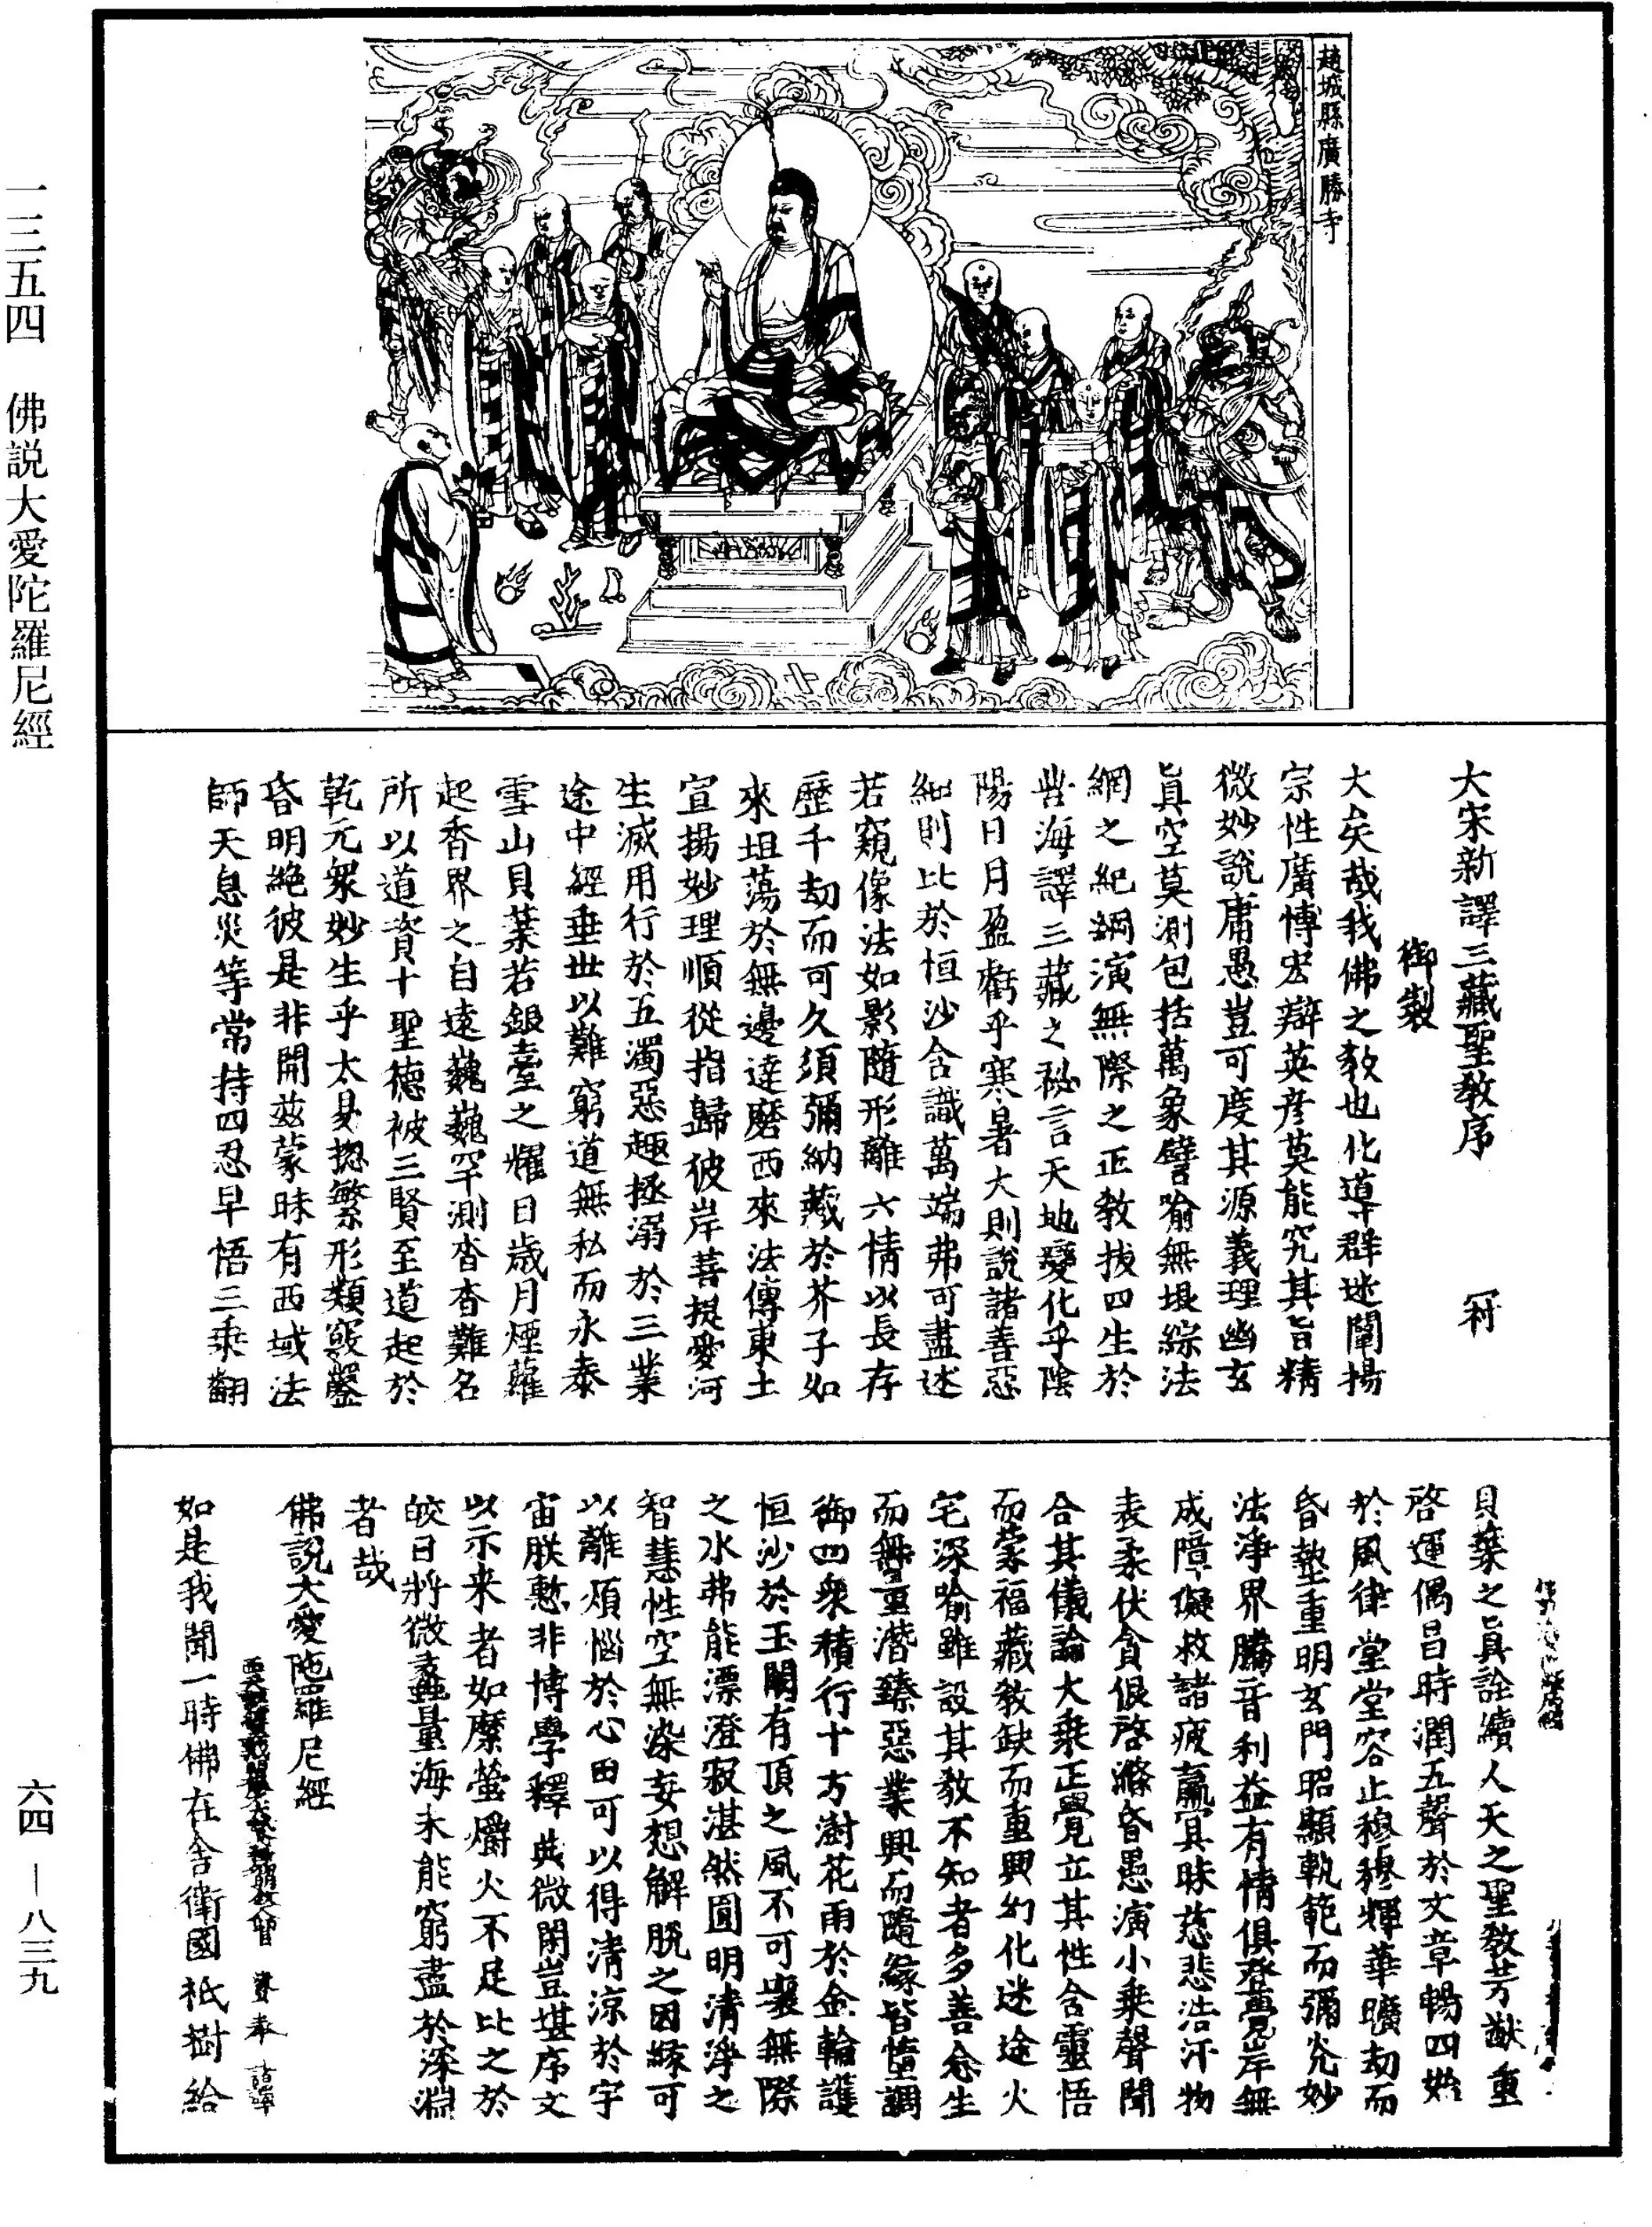 趙城縣廣勝寺
大宋新譯三藏聖教序
御製
村
大矣哉我佛之教也化導群迷闡揚
宗性廣博宏辯英彦莫能究其旨精
微妙說庸愚豈可度其源義理幽玄
真空莫測包括萬象譬喻無垠綜法
網之紀綱演無際之正教拔四生於
苦海譯三藏之秘言天地變化乎陰
陽日月盈虧乎寒暑大則說諸善惡
細則比於恒沙含識萬端弗可盡述
若窺像法如影隨形離六情以長存
歷千劫而可久須彌納藏於芥子如
來坦蕩於無邊達磨西來法傳東土
宣揚妙理順從指歸彼岸菩提愛河
生滅用行於五濁惡趣拯溺於三業
途中經垂世以難窮道無私而永泰
雪山貝葉若銀臺之耀日歲月煙蘿
起香界之自遠巍巍罕測杳杳難名
所以道資十聖德被三賢至道起於
乾元衆妙生乎太易揔繁形類竅鑿
昏明絕彼是非開茲蒙昧有西域法
師天息災等常持四忍早悟三乘翻
貝葉之真詮續人天之聖教芳猷重
啓運偶昌時潤五聲於文章暢四始
於風律堂堂容止穆穆輝華曠劫而
昏墊重明玄門昭顯軌範而彌光妙
法淨界騰音利益有情俱登覺岸無
成障礙救諸疲羸冥昧慈悲浩汗物
表柔伏貪佷啓滌昏愚演小乘聲聞
合其儀論大乘正覺立其性含靈悟
而蒙福藏教缺而重興幻化迷途火
宅深喻雖設其教不知者多善念生
而無量潛臻惡業興而隨緣皆墮調
御四衆積行十方澍花雨於金輪護
恒沙於玉闕有頂之風不可壞無際
之水弗能漂澄寂湛然圓明清淨之
智慧性空無染妄想解脫之因緣可
以離煩惱於心田可以得清涼於宇
宙朕慙非博學釋典微閑豈堪序文
以示來者如縻螢爝火不足比之於
皎日將微蠡量海未能窮盡於深淵
者哉
佛説大愛陁羅尼經
詔譯
如是我聞一時佛在舍衛國祇樹給
一三五四　佛説大愛陀羅尼經
六四—八三九